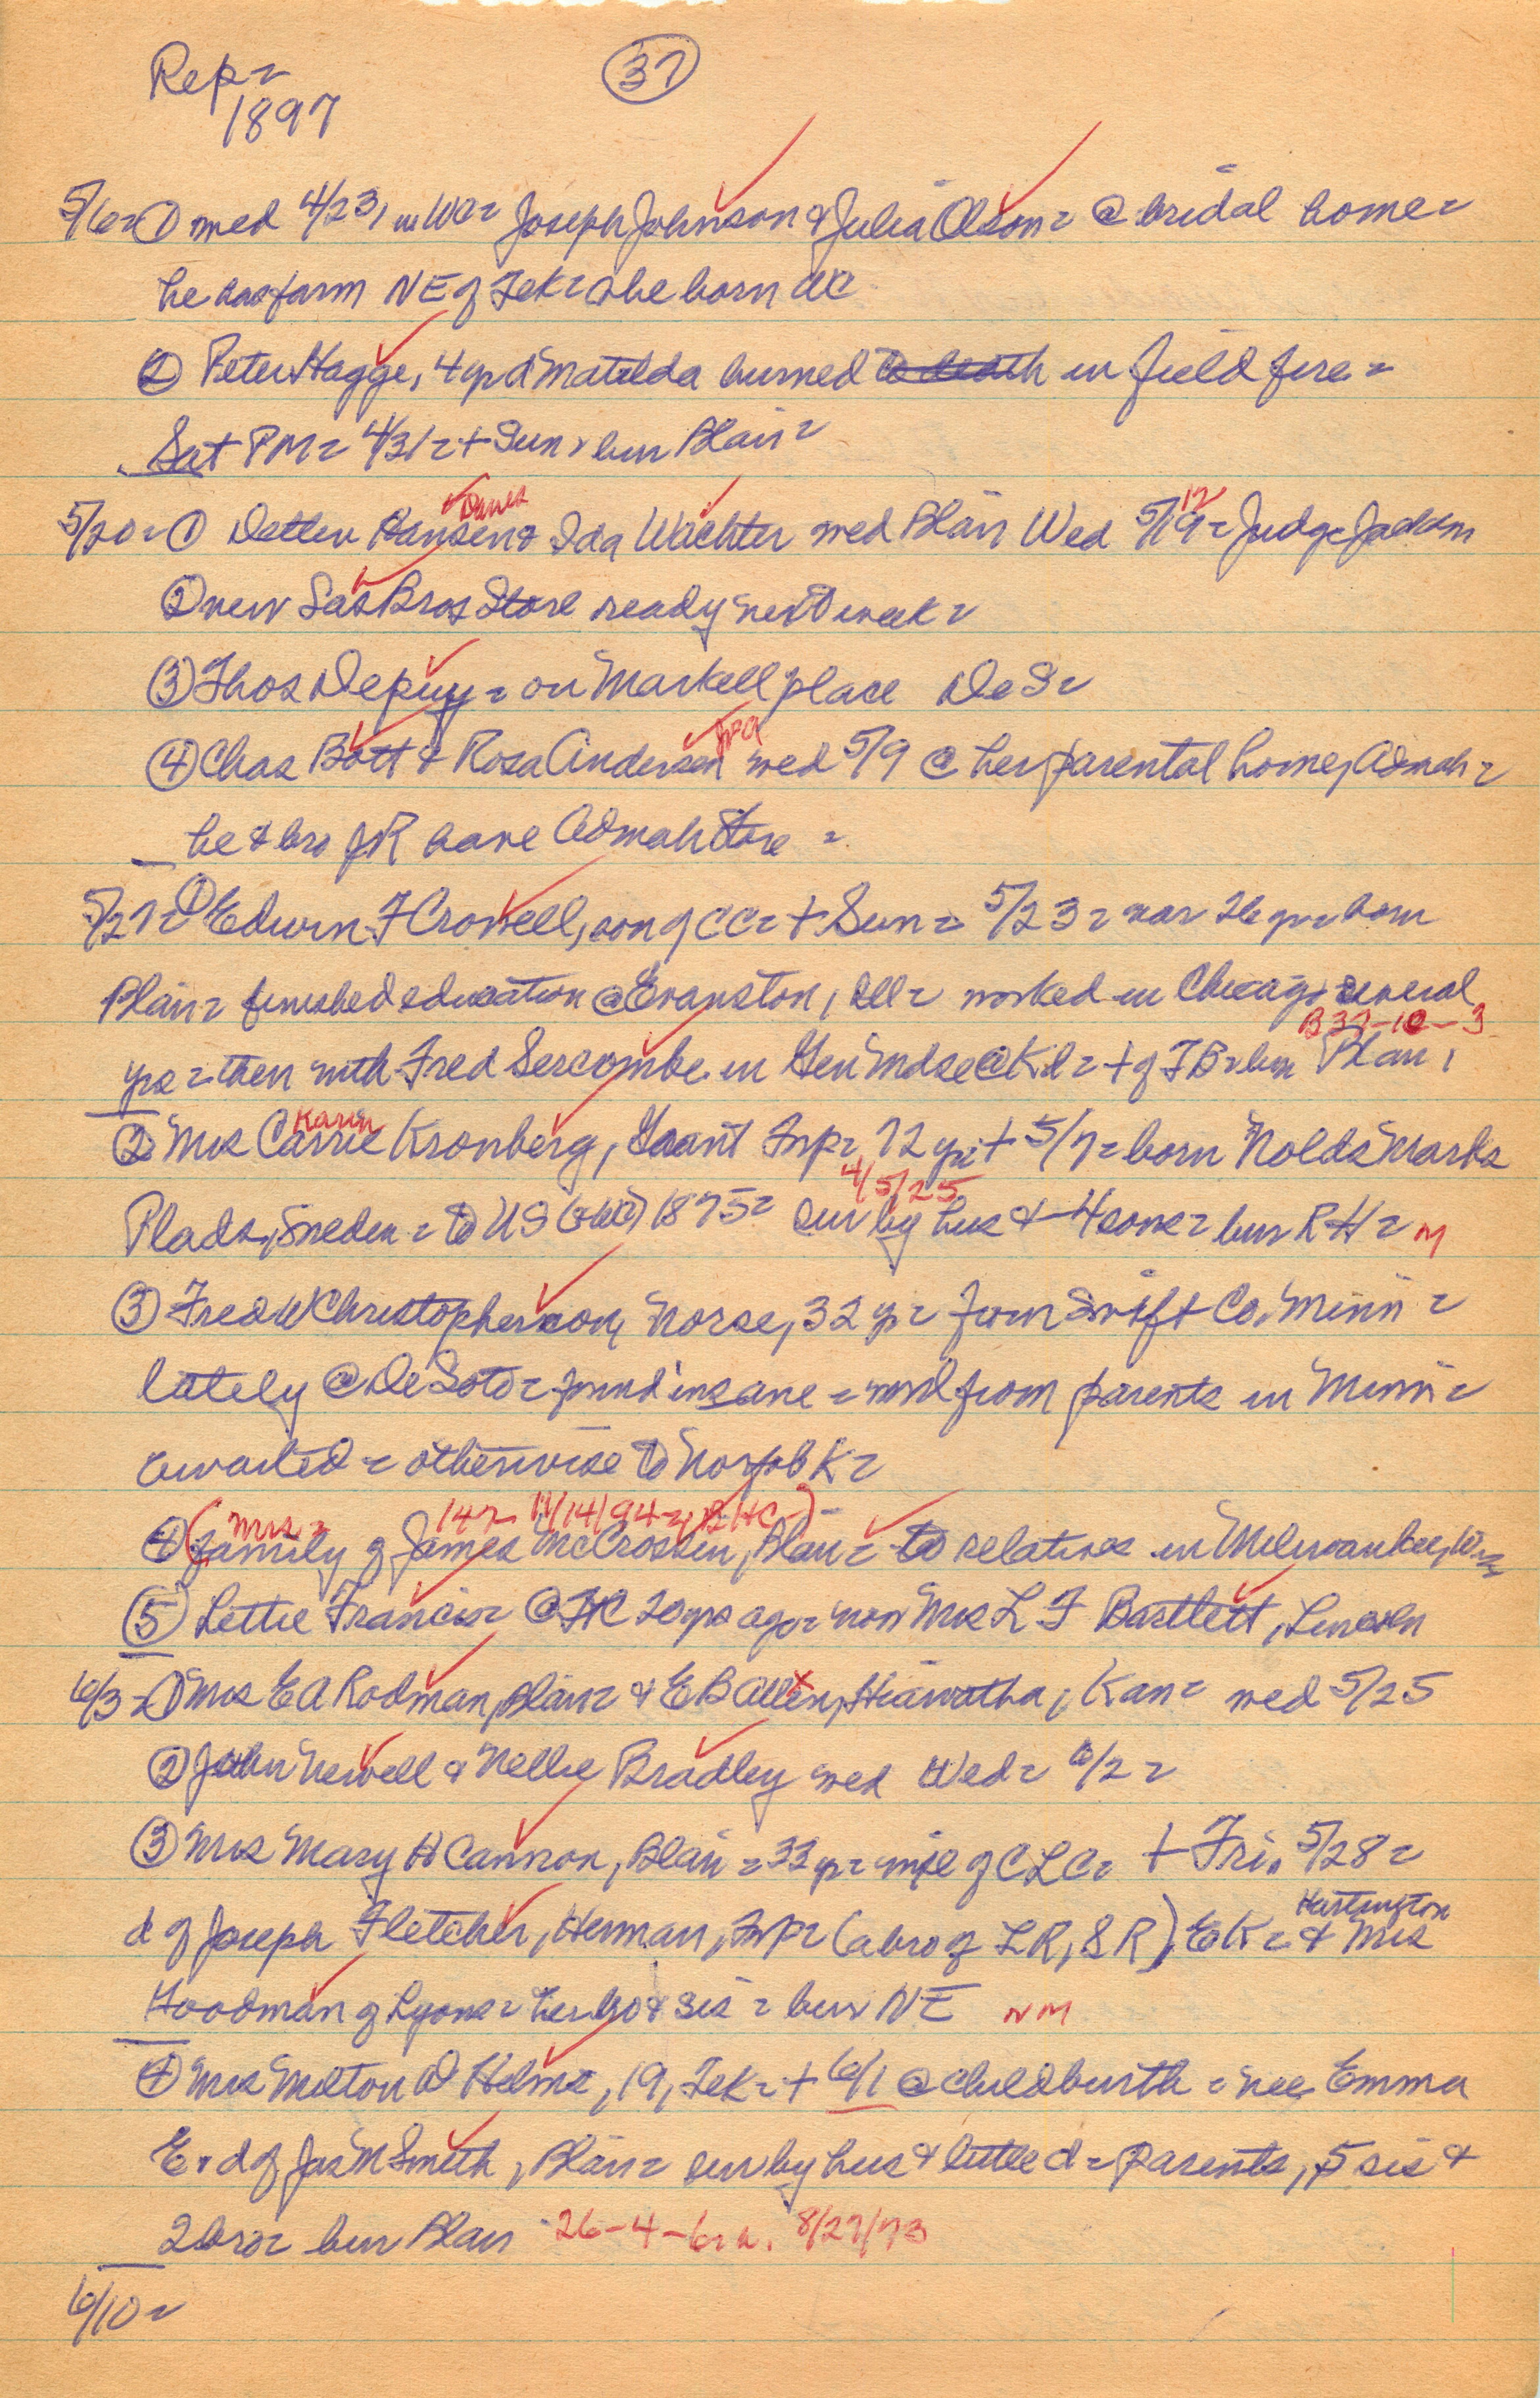 Rep=
37
1897
5/6= ① med 4/23, in WC= Joseph Johnson & Julia Olson= @ bridal home=
he has farm NE of Tek= she born WC
② Peter Hagge, 4 yr d Matilda burned to death in field fire=
Sat PM= 4/31= + Sun, bur Blair=
Danes
12
5/20= ① Detlev Hansen & Ida Wachter med Blair Wed 5/19= Judge Jackson
② new Sas Bros Store ready next week=
③ Thos Depuy= on Markell place DeS=
④ Chas Bott & Rosa Andersen med 5/9 @ her parental home, Admah=
he & bro JR have Admah Store =
5/27= ① Edwin F Crowell, son of CC= + Sun= 5/23= nar 26 yr= born
Blair= finished education @ Evanston, Ill= worked in Chicago several
B 37-10-3
yrs= then with Fred Sercombe in Gen Mdse @ Kd= + of TB= bur Blair,
Karin
② Mrs Carrie Kronberg, Grant Twp= 72 yr + 5/7= born Nolds Marks
4/5/25
Plads, Sweden= to US (& WC) 1875= sur by hus & 4 sons= bur RH= M
③ Fred W Christopherson, Norse, 32 yr= from Swift Co, Minn=
lately @ DeSoto= found insane= word from parents in Minn=
awaited= otherwise to Norfolk=
(Mrs= 147- 11/14/94=, BHC-)
④ family of James McCrossen, Blair= to relatives in Milwaukee, Wis
⑤ Lettie Francis= @ FtC 20 yrs ago= now Mrs L F Bartlett, Lincoln
6/3= ① Mrs E A Rodman, Blair= & E B Allen, Hiawatha, Kan= med 5/25
② John Newell & Nellie Bradley med Wed= 6/2=
③ Mrs Mary H Cannon, Blair= 33 yr= wife of CLC= + Fri, 5/28=
Hartington
d of Joseph Fletcher, Herman, Twp= (a bro of LR, SR), EK= & Mrs
Goodman of Lyons= her bro & sis= bur NE NM
④ Mrs Milton D Helms, 19, Tek= + 6/1 @ childbirth= nee Emma
E= d of Jas M Smith, Blair= sur by hus & little d= parents, 5 sis &
2 bro= bur Blair 26-4-6= a. 8/27/73
6/10=